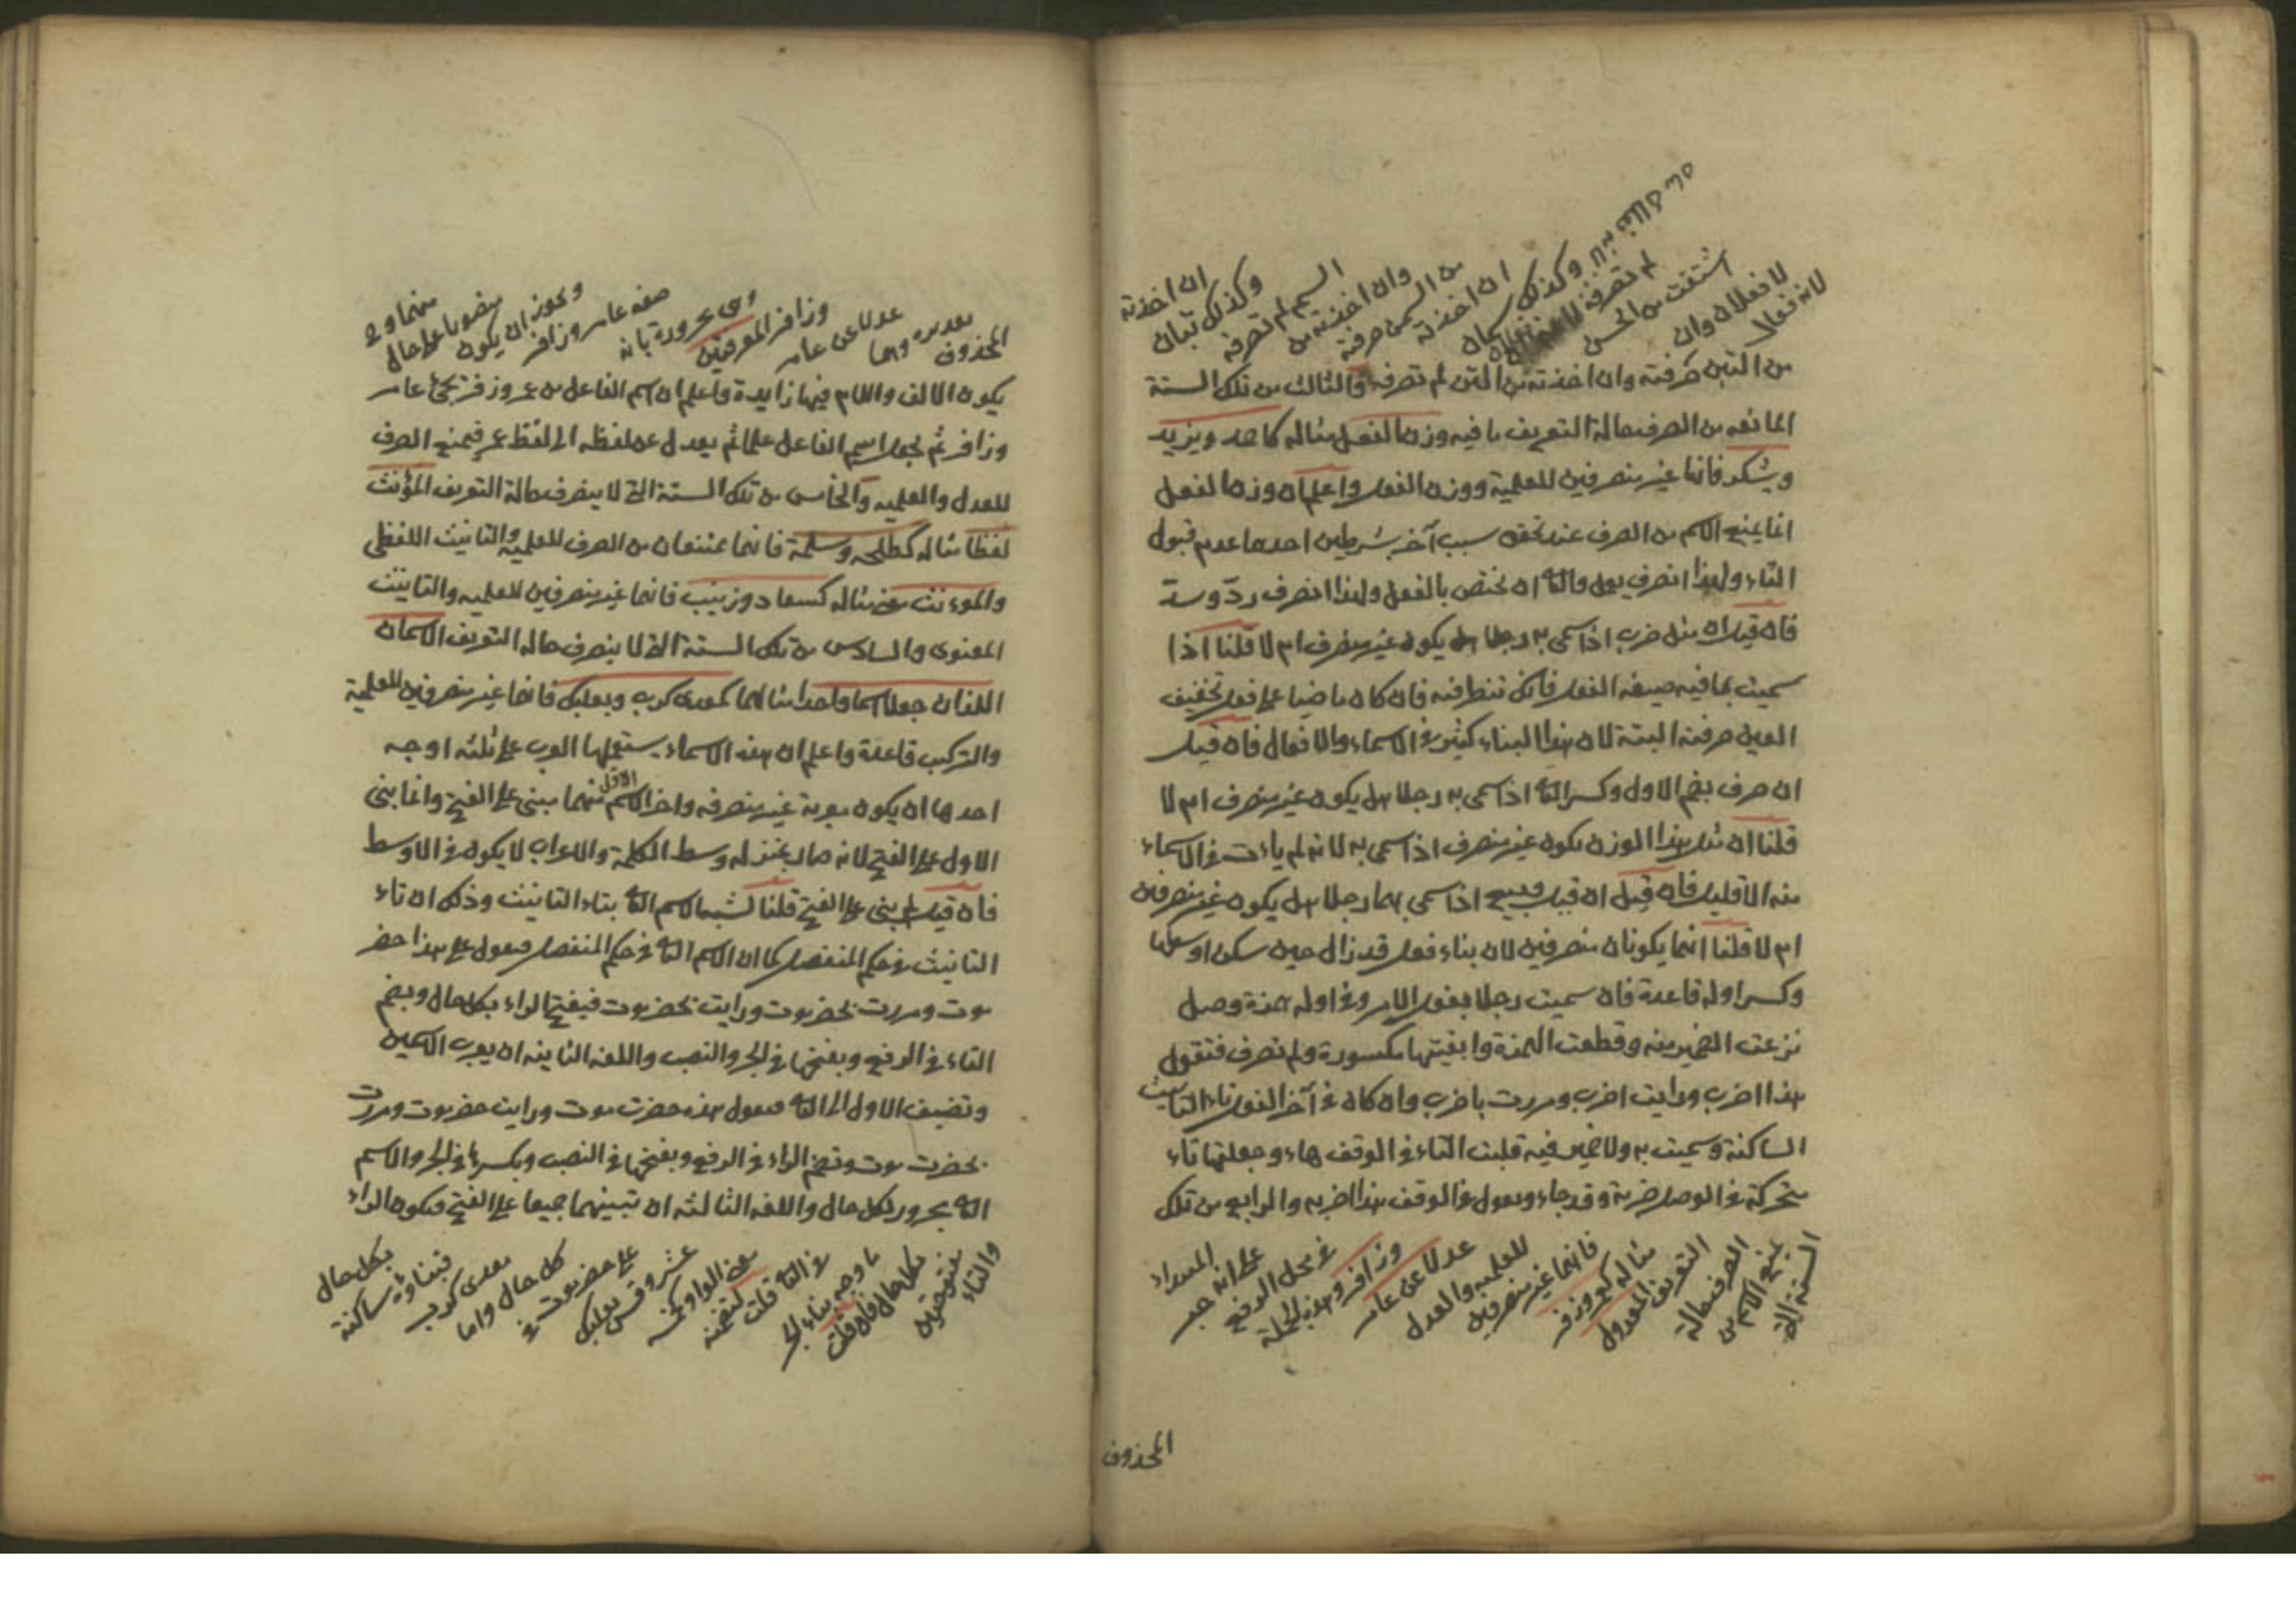 لانه فعالا
لا فعلان وان
اشتقت من الحسن
لم تصرفه
وكذلك سمان
ان اخذته
من السمن صرفته
وان اخذته من
السم لم تصرفه
وكذلك تبان
ان اخذته
من التبن صرفته وان اخذته من التبن لم تصرفه والثالث من تلك الستة
المانعه من الصرف حالة التعريف ما فيه وزن الفعل مثاله كاحمد ويزيد
ويشكر فانها غير منصرفين للعلمية ووزن الفعل واعلم ان وزن الفعل
انما يمنع الاسم من الصرف عند تحقق سبب آخر بشرطين احدهما عدم قبول
التاء ولهذا انصرف يعمل والثاني ان يختص بالفعل ولهذا انصرف ردّ وست
فان قيل ان مثل ضرب اذا سمى به رجلا هل يكون غير منصرف ام لا قلنا اذا
سميت بما فيه صيغه الفعل فانك تنظر فيه فان كان ماضيا على فعل تخفيف
العين صرفته البتة لان هذا البناء كثير في الاسماء والافعال فان قيل
ان صرف بضم الاول وكسر الثاني اذا سمى به رجلا هل يكون غير منصرف ام لا
قلنا ان مثل هذا الوزن يكون غير منصرف اذا سمى به لانه لم يات في الاسماء
منه الا قليل فان قيل ان قيل وبيع اذا سمى بهما رجلا هل يكون غير منصرفين
ام لا قلنا انهما يكونان منصرفين لان بناء فعل قد زال حين سكن اوسطها
وكسر اوله قاعدة فان سميت رجلا بفعل الامر وفي اوله همزة وصل
نزعت الضمير منه وقطعت الهمزة وابقيتها مكسورة ولم تصرف فتقول
هذا اضرب ورايت اضرب ومررت باضرب وان كان في آخر الفعل تاء التانيث
الساكنة وسميت به ولا ضمير فيه قلبت التاء في الوقف هاء وجعلتها تاء
متحركة في الوصل ضربة وقد جاء وتقول في الوقف هذا ضربه والرابع من تلك
الستة التي
يمنع الاسم من
الصرف حالة
التعريف المعدول
مثاله كعمر وزفر
فانهما غير منصرفين
للعلميه والعدل
عدلا عن عامر
وزافر وهذه الجملة
في محل الرفع
على انه خبر
المبتداء
المحذوف
المحذوف
تقديره وهما
عدلا عن عامر
وزافر المعرفتين
وهي مجرورة بانه
صفه عامر وزافر
ويجوز ان يكون
منصوبا على حال
منهما وفي
يكون الالف واللام فيها زايدة واعلم ان اسم الفاعل من عمر وزفر يجئ عامر
وزافر ثم جعل اسم الفاعل علما ثم يعدل عن لفظه الى لفظ عمر فيمنع الصرف
للعدل والعلميه والخامس من تلك الستة التي لا ينصرف حالة التعريف المؤنث
لفظا مثاله كطلحه وسلمة فانهما يمتنعان من الصرف للعلميه والتانيث اللفظي
والمؤنث معنى مثاله كسعاد وزينب فانهما غير منصرفين للعلميه والتانيث
المعنوى والسادس من تلك الستة التي لا ينصرف حاله التعريف الاسمان
اللذان جعلا اسما واحدا مثالهما كمعدى كرب وبعلبك فانهما غير منصرفين للعلمية
والتركيب قاعدة واعلم ان هذه الاسماء يستعملها العرب على ثلثه اوجه
احدها ان يكون معربة غير منصرفه واخر الاسم الاول منهما مبنى على الفتح وانما بنى
الاول على الفتح لانه صار بمنزله وسط الكلمة والاعراب لا يكون في الاوسط
فان قيل لم بنى على الفتح قلنا لشبه الاسم الثاني بتاء التانيث وذلك ان تاء
التانيث في حكم المنفصل كما ان الاسم الثاني في حكم المنفصل فيقول على هذا حضر
موت ومررت بحضرموت ورايت بحضرموت فيفتح الراء بكل حال ويضم
التاء في الرفع ويفتحها في الجر والنصب واللغه الثانيه ان يعرب الاسمين
وتضيف الاول الى الثاني فتقول هذه حضرت موت ورايت حضرموت ومررت
بحضرت موت وتضم الراء في الرفع ويفتحها في النصب ويكسرها في الجر والاسم
الثاني مجرور بكل حال واللغه الثالثه ان تبنيهما جميعا على الفتح فيكون الراء
والتاء
مفتوحتين
بكل حال فان قلت
ما وجه بناء الجزء
الثاني قلت لتضمنه
معنى الواو كخمسه
عشر وقس بعلبك
على حضرموت في
كل حال واما
معدى كرب
فبناؤه ساكنة
بكل حال